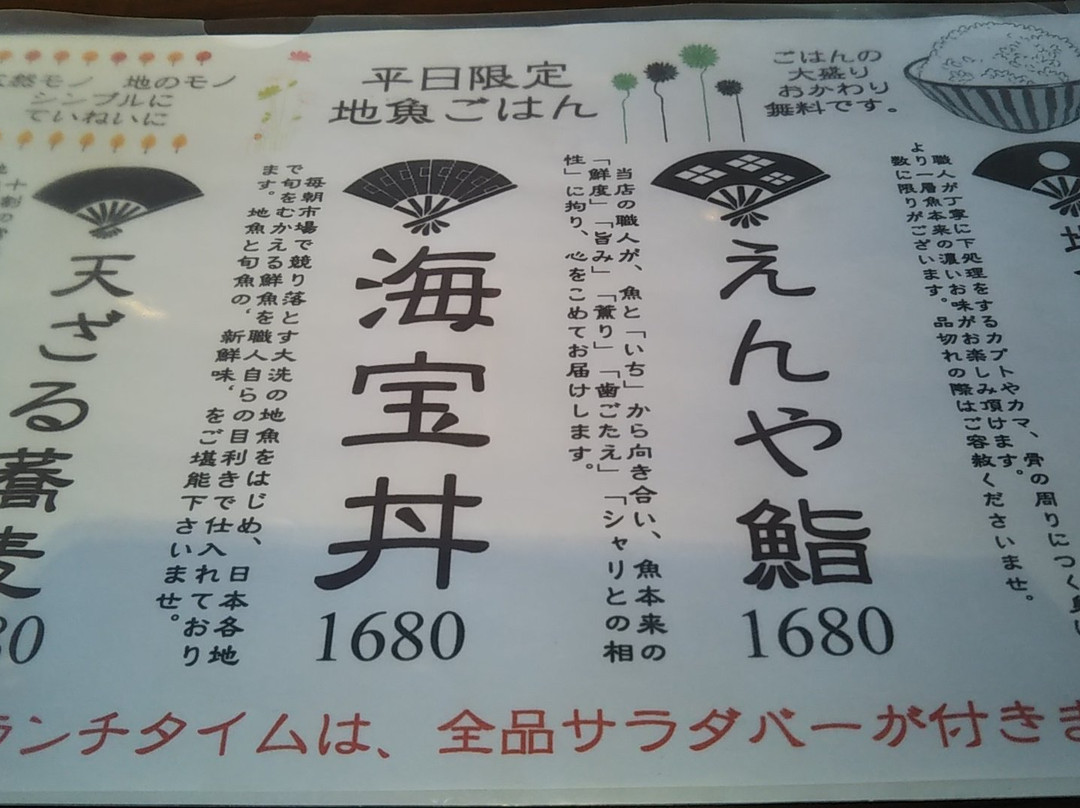 天然モノ 地のモノ
シンプルに
ていねいに
平日限定
地魚ごはん
ごはんの
大盛り
おかわり
無料です。
えんや鮨
1680
当店の職人が、魚と「いち」から向き合い、魚本来の
「鮮度」「旨み」「薫り」「歯ごたえ」「シャリとの相
性」に拘り、心をこめてお届けします。
海宝丼
1680
毎朝市場で競り落とす大洗の地魚をはじめ、日本各地
で旬をむかえる鮮魚を職人自らの目利きで仕入れており
ます。地魚と旬魚の、新鮮味、をご堪能下さいませ。
天ざる蕎麦
80
職人が丁寧に下処理をするカブトやカマ、骨の周りにつく
より一層魚本来の濃いお味がお楽しみ頂けます。
数に限りがございます。品切れの際はご容赦くださいませ。
ランチタイムは、全品サラダバーが付きま